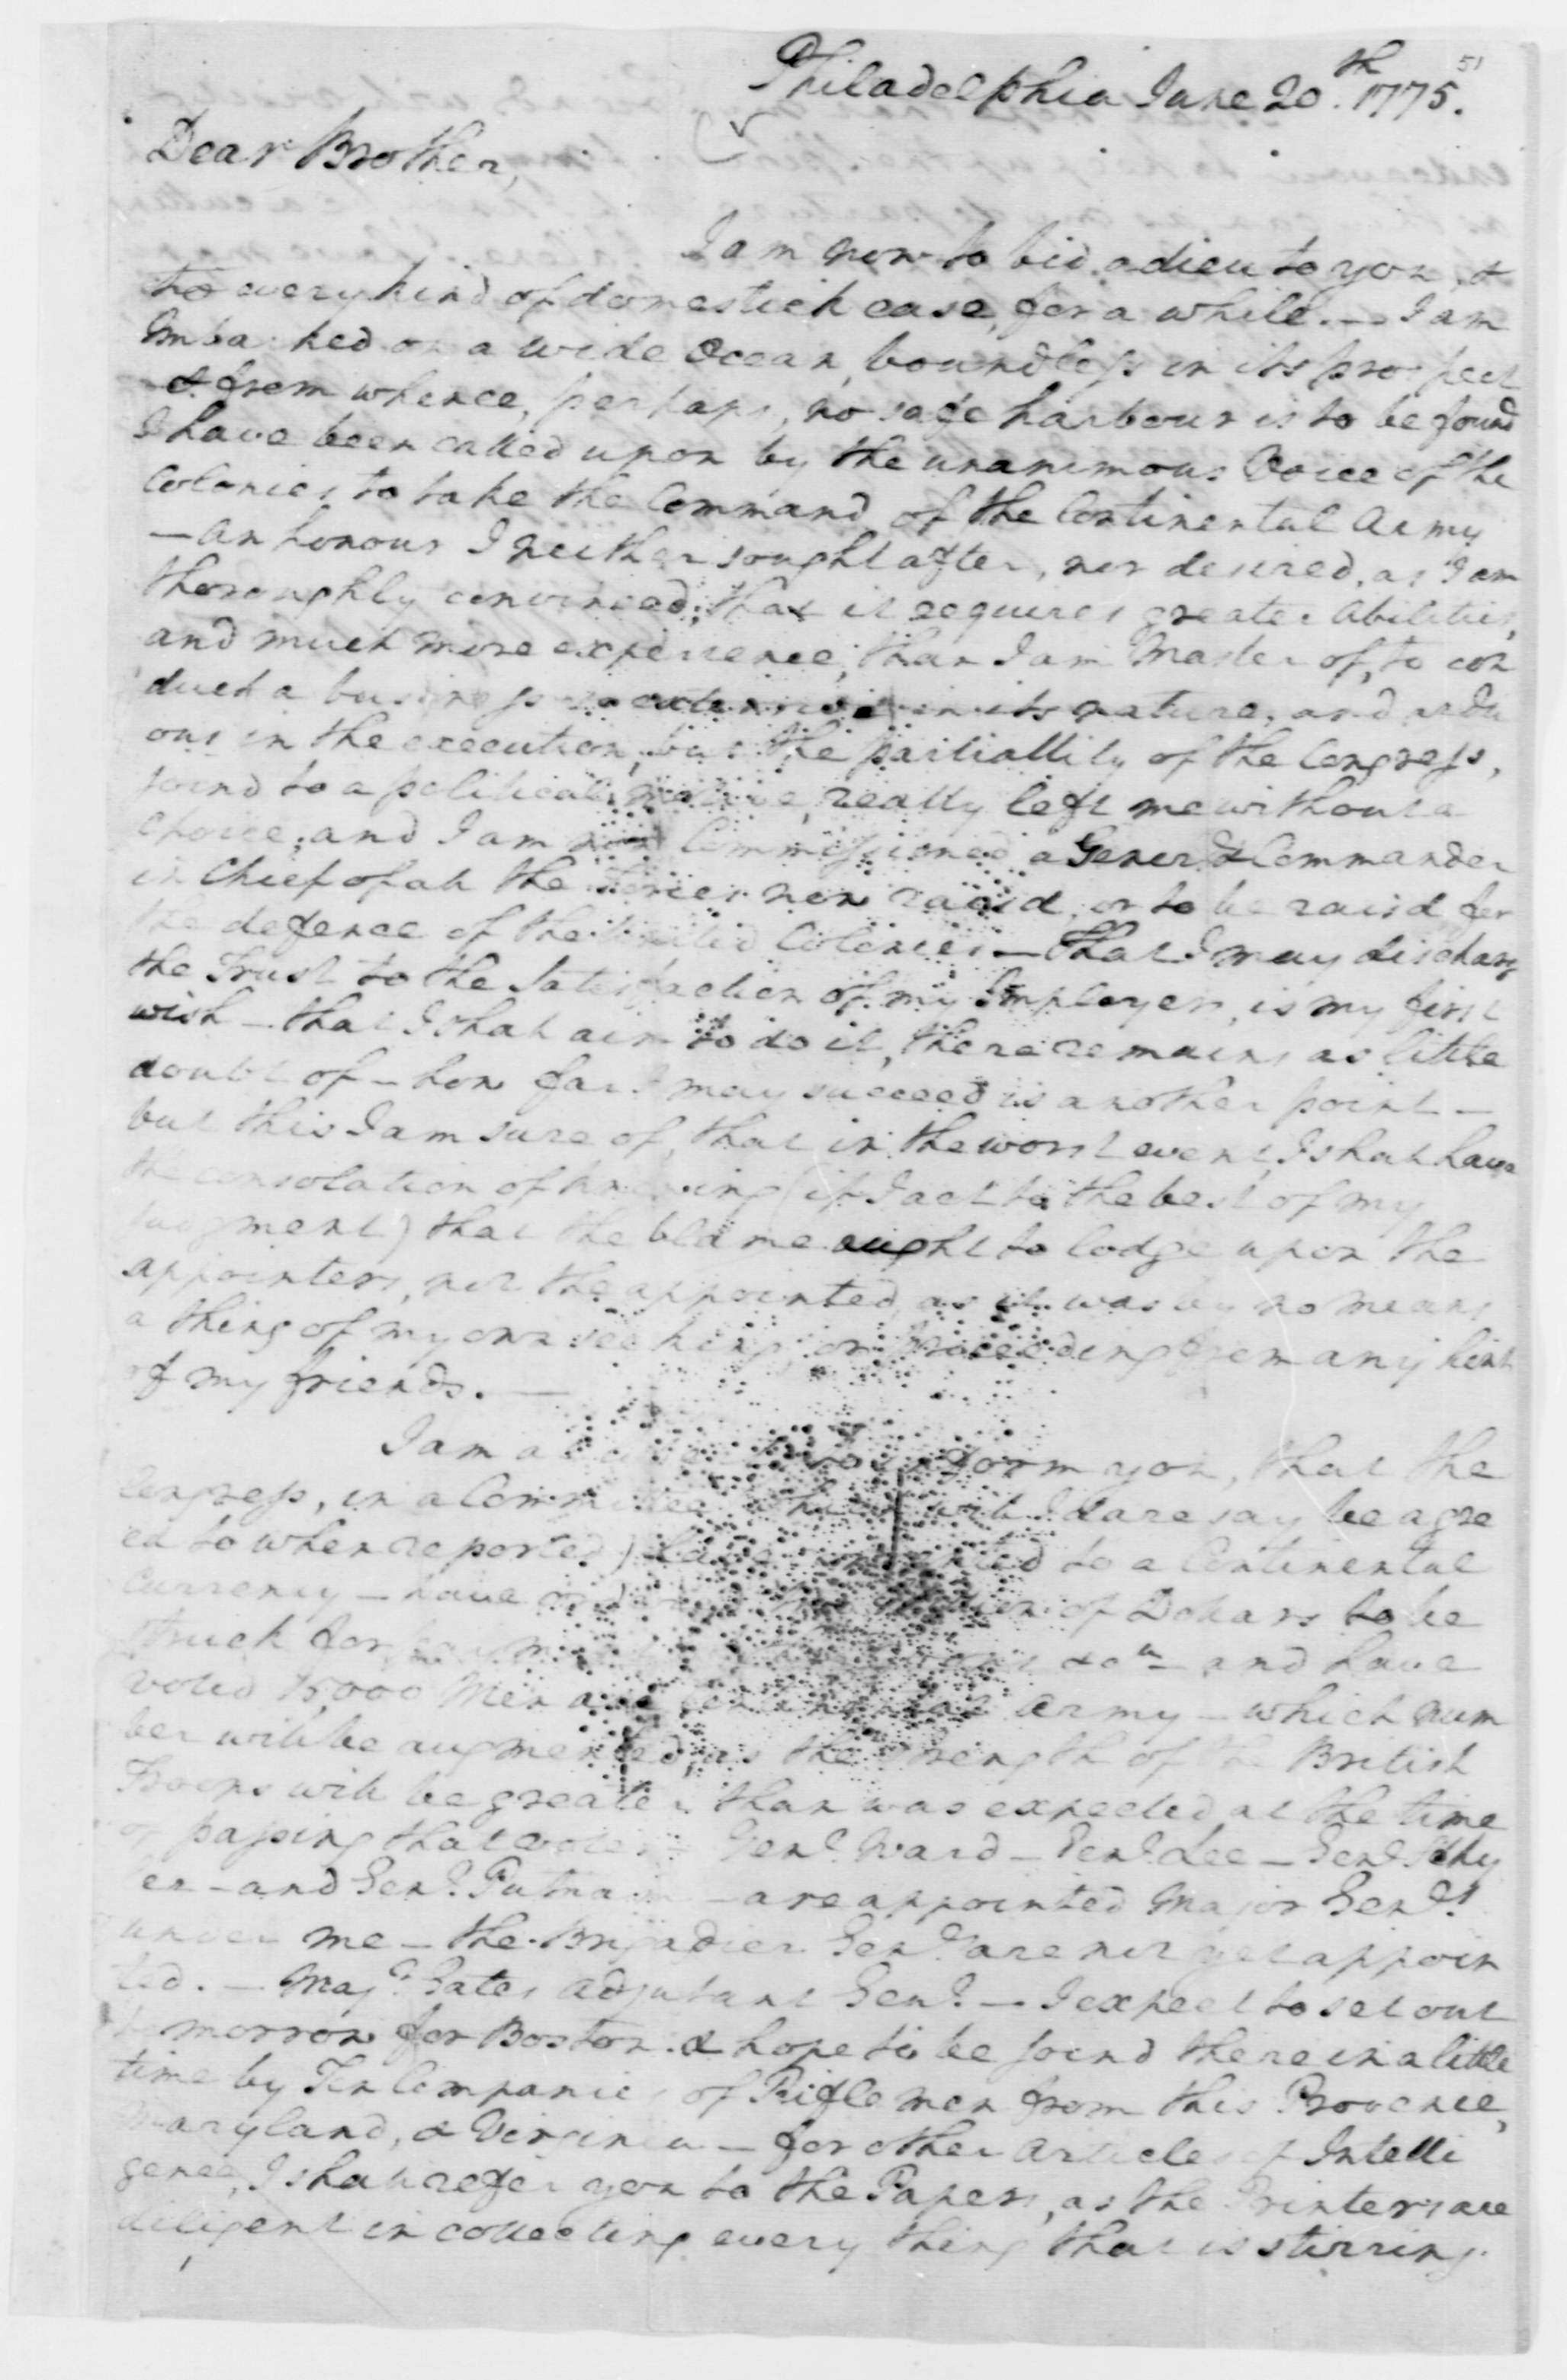 51
Philadelphia June 20th. 1775.
Dear Brother,
I am now to bid adieu to you, &
to every kind of domestick ease, for a while. — I am
Imbarked on a wide Ocean, boundless in its prospect
& from whence, perhaps, no safe harbour is to be found
I have been called upon by the unanimous Voice of the
Colonies to take the Command of the Continental Army
— an honour I neither sought after, nor desired, as I am
thoroughly convinced; that it requires greater Abilities,
and much more experience, than I am Master of, to con
duct a business so extensive in its nature, and ardu
ous in the execution, but the partiallity of the Congress,
joind to a political motive, really left me without a
choice; and I am now Commissioned a Generl & Commander
in Chief of all the Forces now raisd, or to be raisd for
the defence of the United Colonies — That I may discharge
the Trust to the Satisfaction of my Imployers, is my first
wish — that I shall aim to do it, there remains as little
doubt of — how far I may succeed is another point —
but this I am sure of, that in the worst event, I shall have
the consolation of knowing (if I act to the best of my
judgment) that the blame ought to lodge upon the
appointers, not the appointed, as it was by no means
a thing of my own seeking, or proceeding from any hint
of my friends. —
I am at to inform you, that the
Congress, in a Committee which will I dare say be agre
ed to when reported) have consented to a Continental
Currency — have ordered two Million of Dollars to be
struck for payment &ca — and have
voted 15000 Men as a Continental Army — which num
ber will be augmented, as the Strength of the British
Troops will be greater than was expected at the time
of passing that vote. Genl. Ward — Genl. Lee — Genl. Schuy
ler — and Genl. Putnam — are appointed Major Genls.
under me — the Brigadier Genls. are not yet appoin
ted. — Majr. Gates Adjutant Genl. — I expect to set out
tomorrow for Boston & hope to be joind there in a little
time by Ten Companies of Riflemen from this Provence,
Maryland, & Virginia — for other Articles of Intelli
gence, I shall refer you to the Papers, as the Printers are
diligent in collecting every thing that is stirring.